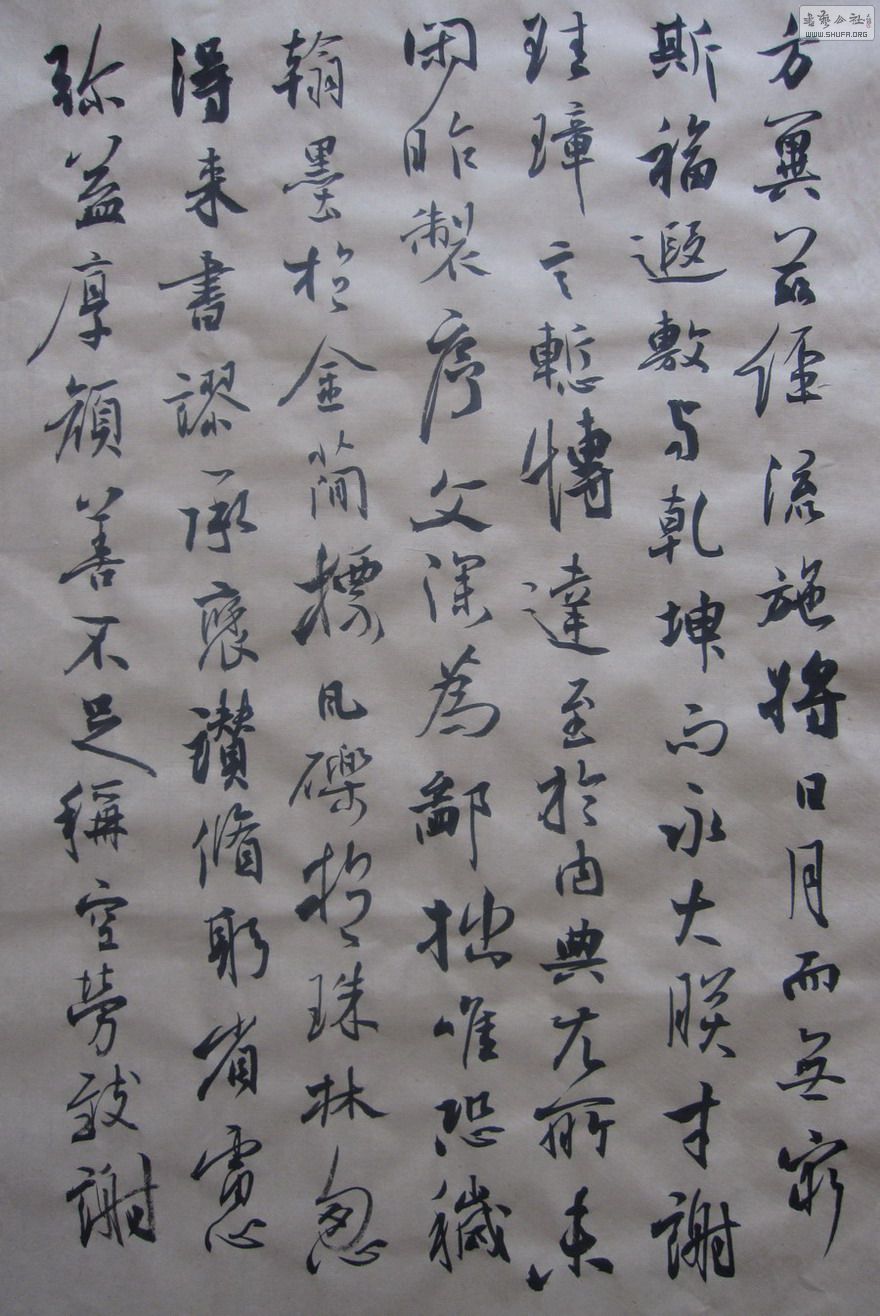 方冀茲經流施將日月而無窮
斯福遐敷与乾坤而永大朕才謝
珪璋言慙博達至於內典尤所未
閑昨製序文深為鄙拙唯恐穢
翰墨於金簡標瓦礫於珠林忽
得来書謬承褒讚循躬省慮
弥益厚顏善不足稱空勞致謝
書藝公社
WWW.SHUFA.ORG